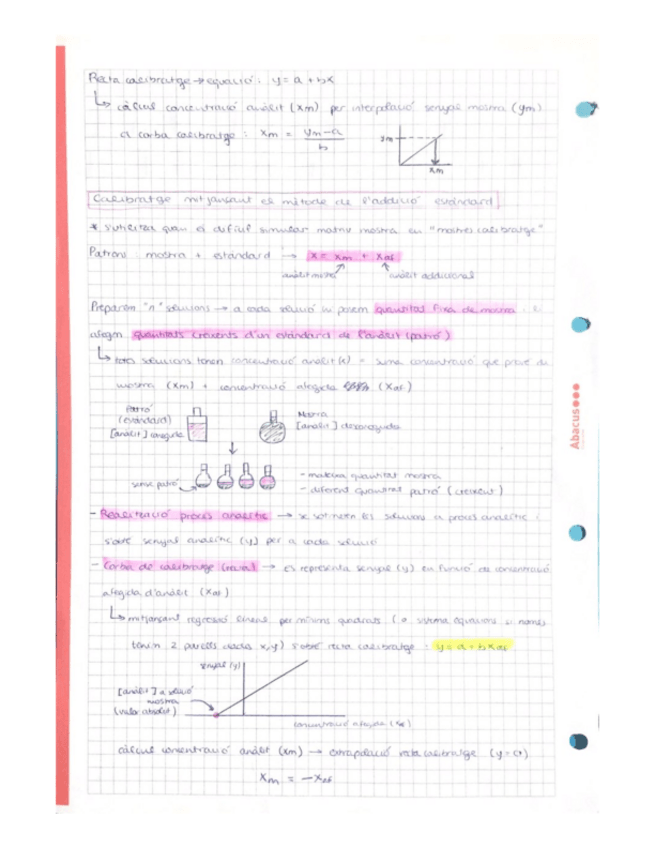 Recta calibratge → equació: y = a + bx
↳ càlcul concentració anàlit (xm) per interpolació senyal mostra (ym)
a corba calibratge: xm = ym-a / b
ym
xm
Calibratge mitjançant el mètode de l'addició estàndard
* s'utilitza quan és difícil simular matriu mostra en "mostres calibratge"
Patrons: mostra + estàndard → x = xm + xaf
anàlit mostra
anàlit addicional
Preparem "n" solucions → a cada solució hi posem quantitat fixa de mostra i li
afegim quantitats creixents d'un estàndard de l'anàlit (patró)
↳ totes solucions tenen concentració anàlit (x) = suma concentració que prové de
mostra (xm) + concentració afegida (xaf)
Patró
(estàndard)
[anàlit] coneguda
Mostra
[anàlit] desconeguda
sense patró
- mateixa quantitat mostra
- diferent quantitat patró (creixent)
- Realització procés analític → se sotmeten les solucions a procés analític i
s'obté senyal analític (y) per a cada solució
- Corba de calibratge (recta) → es representa senyal (y) en funció de concentració
afegida d'anàlit (xaf)
↳ mitjançant regressió lineal per mínims quadrats (o sistema equacions si només
tenim 2 parells dades x,y) s'obté recta calibratge: y = a + bxaf
senyal (y)
[anàlit] a solució
mostra
(valor absolut)
concentració afegida
càlcul concentració anàlit (xm) → extrapolació recta calibratge (y=0)
xm = -xaf
Abacus